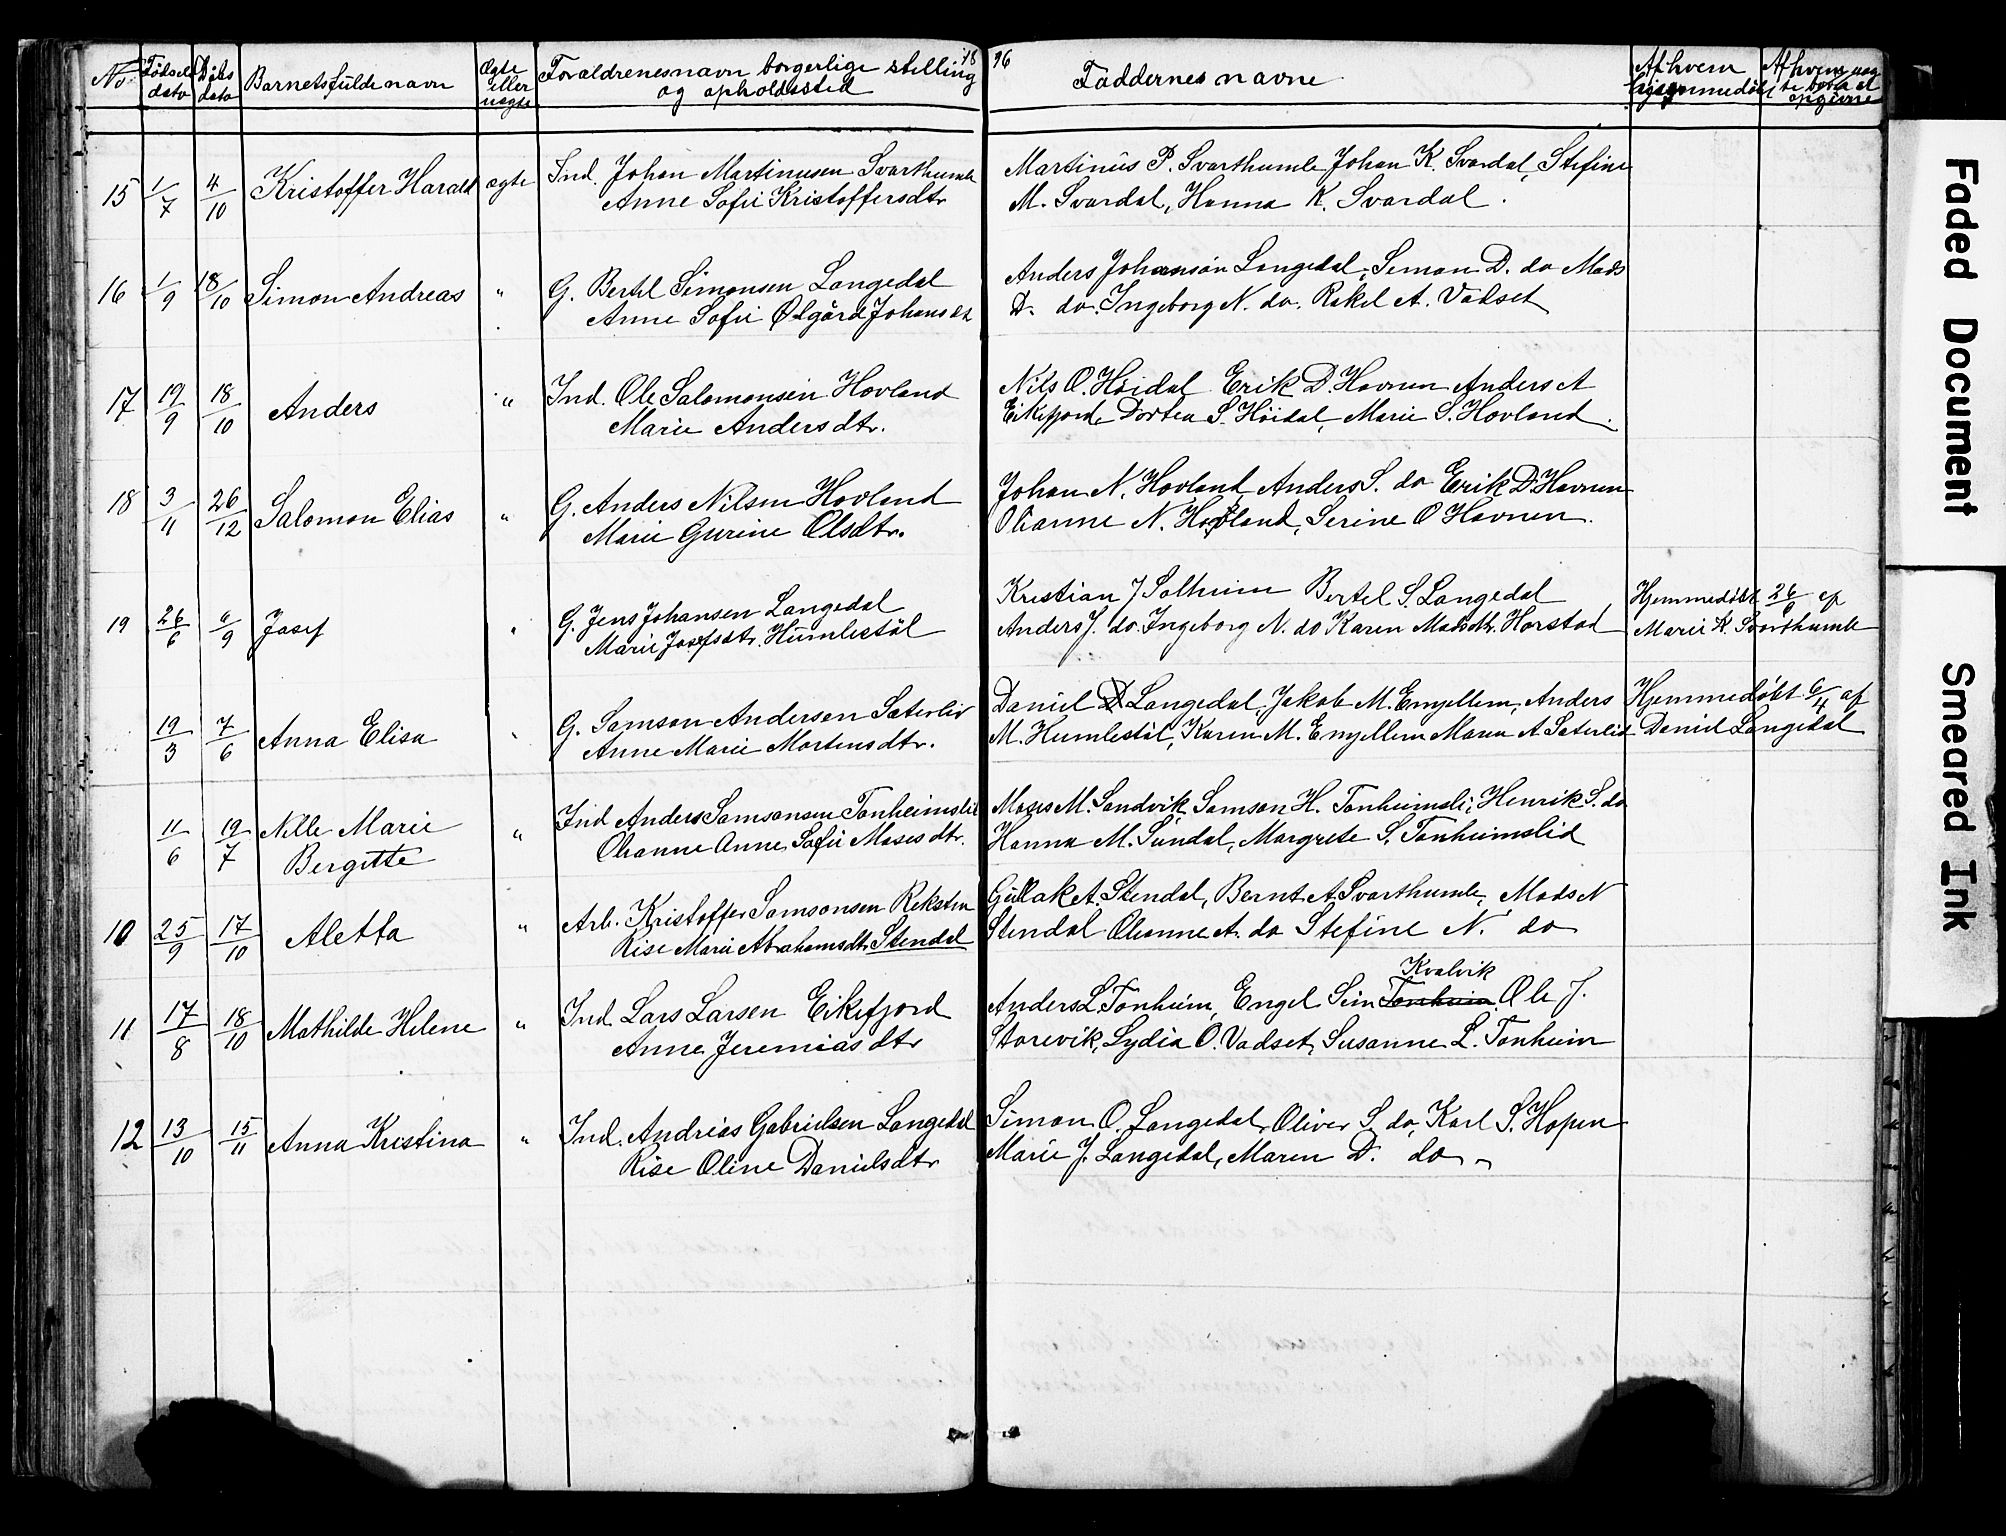 No. Fødsels dato Dåbs dato Barnets fulde navn Ægte eller uægte Forældrenes navn borgerlige stilling og opholdssted 18
96 Faddernes navne Af hvem hjemmedøbt
15 1/7 4/10 Kristoffer Harald ægte Ind. Johan Martinusen Svarthumle
Anne Sofie Kristoffersdtr
Martinus P. Svarthumle, Johan K. Svardal, Stefine
M. Svardal, Hanna K. Svardal.
16 1/9 18/10 Simon Andreas " G. Bertel Simonsen Langedal
Anne Sofie Olgård Johansdt
Anders Johansón Langedal, Simon D. do Mads
D. do. Ingeborg N. do. Rakel A. Vadset
17 19/9 18/10 Anders " Ind. Ole Salomonsen Hovland
Marie Andersdtr.
Nils O. Høidal Erik D. Havnen Anders A
Eikefjord, Dortea S. Høidal, Marie S. Hovland.
18 3/11 26/12 Salomon Elias " G. Anders Nilsen Hovland
Marie Gurine Olsdtr.
Johan N. Hovland, Anders S. do Erik D. Havnen
Olianne N. Hovland, Serine O Havnen.
19 26/6 6/9 Josef " G. Jens Johansen Langedal
Marie Josefsdtr. Humlestøl
Kristian J Solheim Bertel S. Langedal
Anders J. do. Ingeborg N. do Karen Madsdtr. Horstad
Hjemmedøbt 26/6 af
Marie K. Svarthumle
19/3 7/6 Anna Elisa " G. Samson Andersen Sæterlid
Anne Marie Mortensdtr.
Daniel D Langedal, Jakob M. Emhjellem, Anders
M. Humlestøl, Karen M. Emhjellem Maren A. Sæterlid
Hjemmedøbt 6/4 af
Daniel Langedal
11/6 19/7 Nille Marie
Bergitte " Ind Anders Samsonsen Tonheimslid
Olianne Anne Sofie Mosesdtr.
Moses M. Sandvik, Samson H. Tonheimsli, Henrik S. do
Hanna M. Sundal, Margrete S. Tonheimslid
10 25/9 17/10 Aletta " Arb. Kristoffer Samsonsen Reksten
Rise Marie Abrahamsdtr. Stendal
Gullak A. Stendal, Bernt A Svarthumle, Mads N
Stendal Olianne A. do Stefine N. do
11 17/8 18/10 Mathilde Helene " Ind. Lars Larsen Eikefjord
Anne Jeremiasdtr
Kvalvik
Anders L Tonheim, Engel Sim Tonheim, Ole J.
Storevik, Lydia O. Vadset, Susanne L. Tonheim
12 13/10 15/11 Anna Kristina " Ind. Andreas Gabrielsen Langedal
Rise Oline Danielsdtr
Simon O. Langedal, Oliver S. do, Karl S. Hopen
Marie J. Langedal, Maren D. do
Faded Document
Smeared Ink